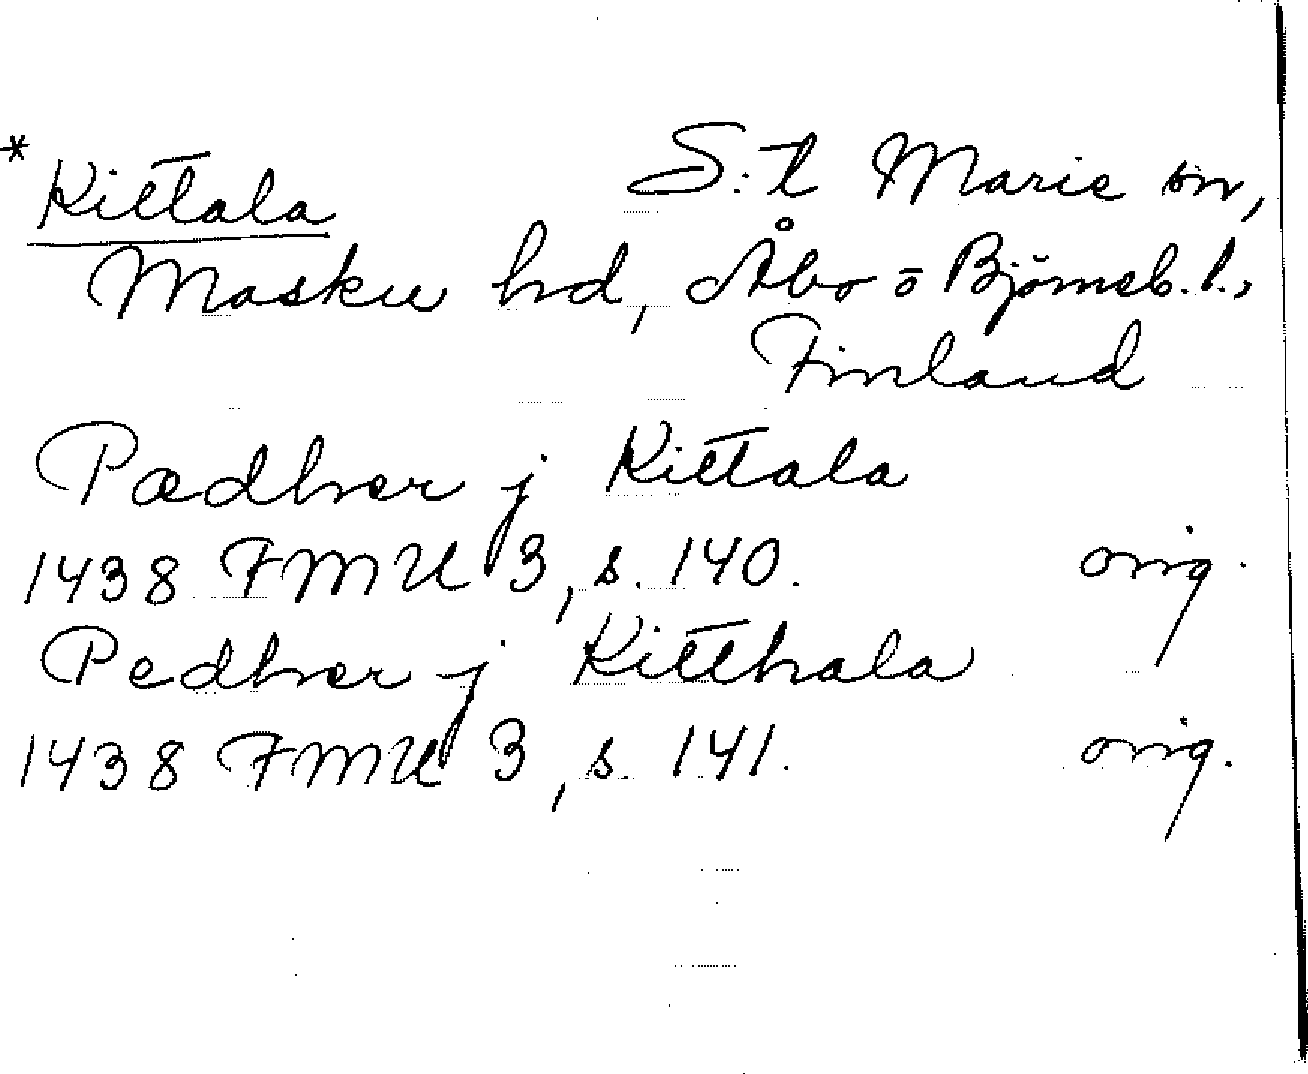 * Kittala S:t Marie sn,
Masku hd, Åbo o Björneb. l.,
Finland
Pædher j Kittala
1438 FMU 3, s. 140. orig.
Pedher j Kitthala
1438 FMU 3, s. 141. orig.